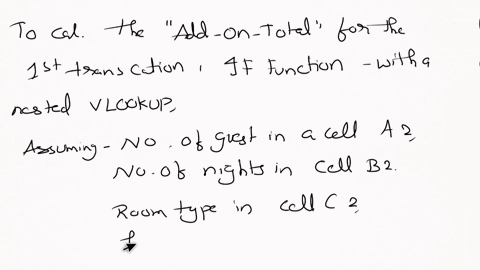 To cal. the "Add-On-Total" for the
1st transaction, IF Function - with a
nested VLOOKUP,
Assuming - No. of guest in a cell A2,
No. of nights in cell B2.
Room type in cell C2,